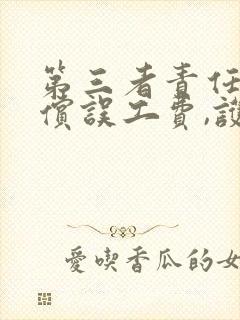 第三者責任
償誤工費,護
愛喫香瓜的女